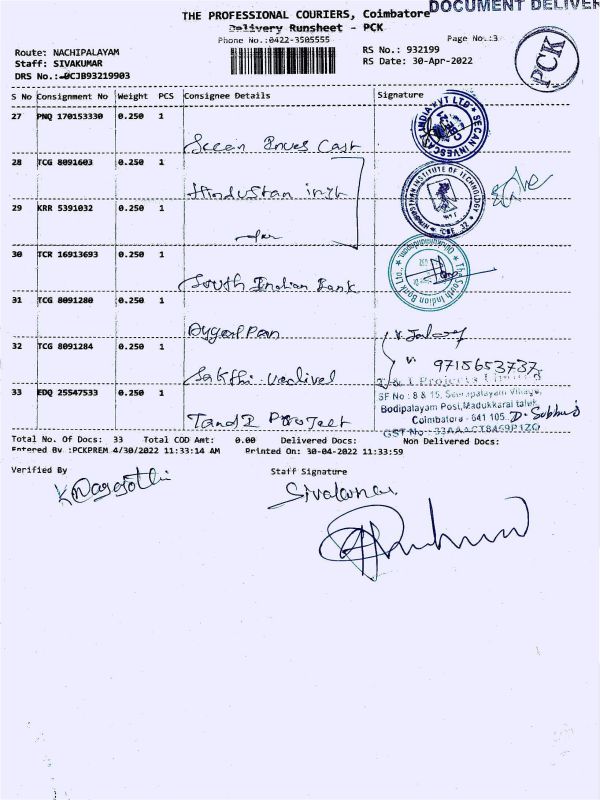 DOCUMENT DELIVER
THE PROFESSIONAL COURIERS, Coimbatore
Delivery Runsheet - PCK
Phone No.:0422-3505555
Page No.:3
PCK
Route: NACHIPALAYAM
RS No.: 932199
Staff: SIVAKUMAR
RS Date: 30-Apr-2022
DRS No.:-DCJB93219903
S No Consignment No Weight PCS Consignee Details Signature
27 PNQ 170153330 0.250 1
28 TCG 8091603 0.250 1
Hindustan
HINDUSTHAN INSTITUTE OF TECHNOLOGY
29 KRR 5391032 0.250 1
30 TCR 16913693 0.250 1
South Indian Bank
The South Indian Bank Ltd.,
31 TCG 8091280 0.250 1
32 TCG 8091284 0.250 1
9715653737
Sakthi
33 EDQ 25547533 0.250 1
T and I Project
SF No : 8 & 15, Seerapalayam Village,
Bodipalayam Post, Madukkarai taluk,
Coimbatore - 641 105.
GST No : 33AAACT8469P1ZO
Total No. Of Docs: 33 Total COD Amt: 0.00 Delivered Docs: Non Delivered Docs:
Entered By :PCKPREM 4/30/2022 11:33:14 AM Printed On: 30-04-2022 11:33:59
Verified By
Staff Signature
Sivakumar